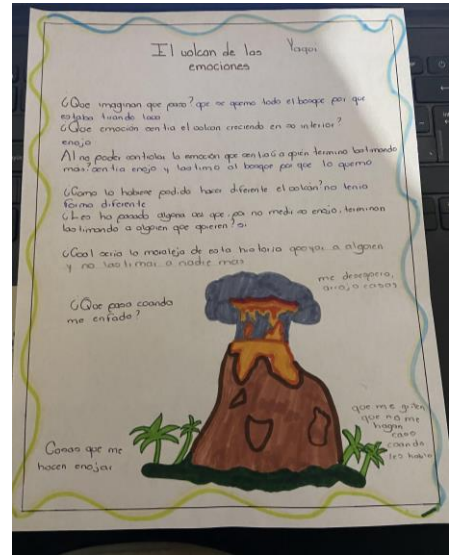 El volcan de las
emociones
Yaqui
¿Que imaginan que paso? que se quemo todo el bosque por que
estaba tirando lava
¿Que emoción sentia el volcan creciendo en su interior?
enojo
Al no poder controlar la emoción que sentia ¿a quien termino lastimando
mas? sentia enojo y lastimo al bosque por que lo quemo
¿Como lo hubiera podido hacer diferente el volcán? no tenia
forma diferente
¿Les ha pasado alguna vez que por no medir su enojo, terminan
lastimando a alguien que quieren? si
¿Cual seria la moraleja de esta historia apoyar a alguien
y no lastimar a nadie mas
me desespero,
arrojo cosas
¿Que pasa cuando
me enfado?
que me griten
que no me
hagan
caso
cuando
les hablo
Cosas que me
hacen enojar